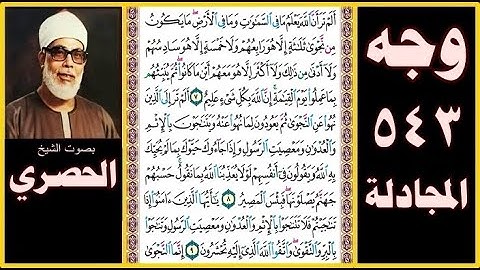 وجه
٥٤٣
المجادلة
أَلَمْ تَرَ أَنَّ ٱللَّهَ يَعْلَمُ مَا فِى ٱلسَّمَٰوَٰتِ وَمَا فِى ٱلْأَرْضِ ۖ مَا يَكُونُ
مِن نَّجْوَىٰ ثَلَٰثَةٍ إِلَّا هُوَ رَابِعُهُمْ وَلَا خَمْسَةٍ إِلَّا هُوَ سَادِسُهُمْ
وَلَآ أَدْنَىٰ مِن ذَٰلِكَ وَلَآ أَكْثَرَ إِلَّا هُوَ مَعَهُمْ أَيْنَ مَا كَانُوا۟ ۖ ثُمَّ يُنَبِّئُهُم
بِمَا عَمِلُوا۟ يَوْمَ ٱلْقِيَٰمَةِ ۚ إِنَّ ٱللَّهَ بِكُلِّ شَىْءٍ عَلِيمٌ ٧ أَلَمْ تَرَ إِلَى ٱلَّذِينَ
نُهُوا۟ عَنِ ٱلنَّجْوَىٰ ثُمَّ يَعُودُونَ لِمَا نُهُوا۟ عَنْهُ وَيَتَنَٰجَوْنَ بِٱلْإِثْمِ
وَٱلْعُدْوَٰنِ وَمَعْصِيَتِ ٱلرَّسُولِ وَإِذَا جَآءُوكَ حَيَّوْكَ بِمَا لَمْ يُحَيِّكَ
بِهِ ٱللَّهُ وَيَقُولُونَ فِىٓ أَنفُسِهِمْ لَوْلَا يُعَذِّبُنَا ٱللَّهُ بِمَا نَقُولُ ۚ حَسْبُهُمْ
جَهَنَّمُ يَصْلَوْنَهَا ۖ فَبِئْسَ ٱلْمَصِيرُ ٨ يَٰٓأَيُّهَا ٱلَّذِينَ ءَامَنُوٓا۟ إِذَا
تَنَٰجَيْتُمْ فَلَا تَتَنَٰجَوْا۟ بِٱلْإِثْمِ وَٱلْعُدْوَٰنِ وَمَعْصِيَتِ ٱلرَّسُولِ وَتَنَٰجَوْا۟
بِٱلْبِرِّ وَٱلتَّقْوَىٰ ۖ وَٱتَّقُوا۟ ٱللَّهَ ٱلَّذِىٓ إِلَيْهِ تُحْشَرُونَ ٩ إِنَّمَا ٱلنَّجْوَىٰ
بصوت الشيخ
الحصري